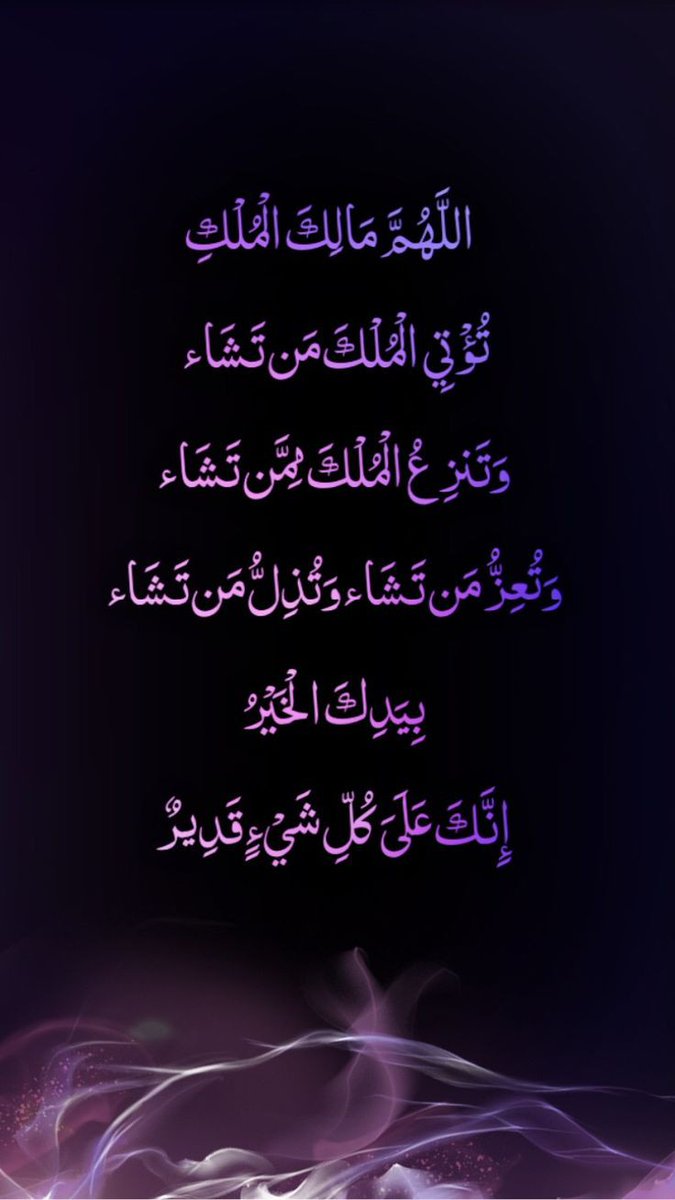 اللَّهُمَّ مَالِكَ الْمُلْكِ
تُؤْتِي الْمُلْكَ مَن تَشَاء
وَتَنزِعُ الْمُلْكَ مِمَّن تَشَاء
وَتُعِزُّ مَن تَشَاء وَتُذِلُّ مَن تَشَاء
بِيَدِكَ الْخَيْرُ
إِنَّكَ عَلَىَ كُلِّ شَيْءٍ قَدِيرٌ